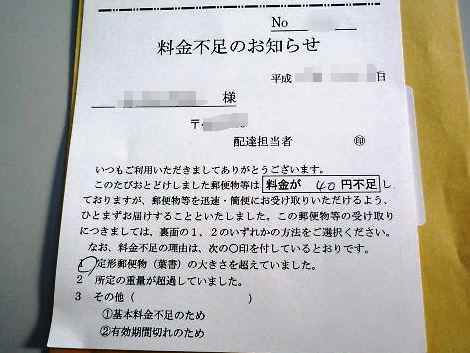 No
料金不足のお知らせ
平成 日
様
〒
配達担当者 ㊞
いつもご利用いただきましてありがとうございます。
このたびおとどけしました郵便物等は 料金が 40 円不足 し
ておりますが、郵便物等を迅速・簡便にお受け取りいただけるよう、
ひとまずお届けすることといたしました。この郵便物等の受け取り
につきましては、裏面の1、2のいずれかの方法をご選択ください。
なお、料金不足の理由は、次の〇印を付しているとおりです。
1 定形郵便物(葉書)の大きさを超えていました。
2 所定の重量が超過していました。
3 その他( )
①基本料金不足のため
②有効期間切れのため